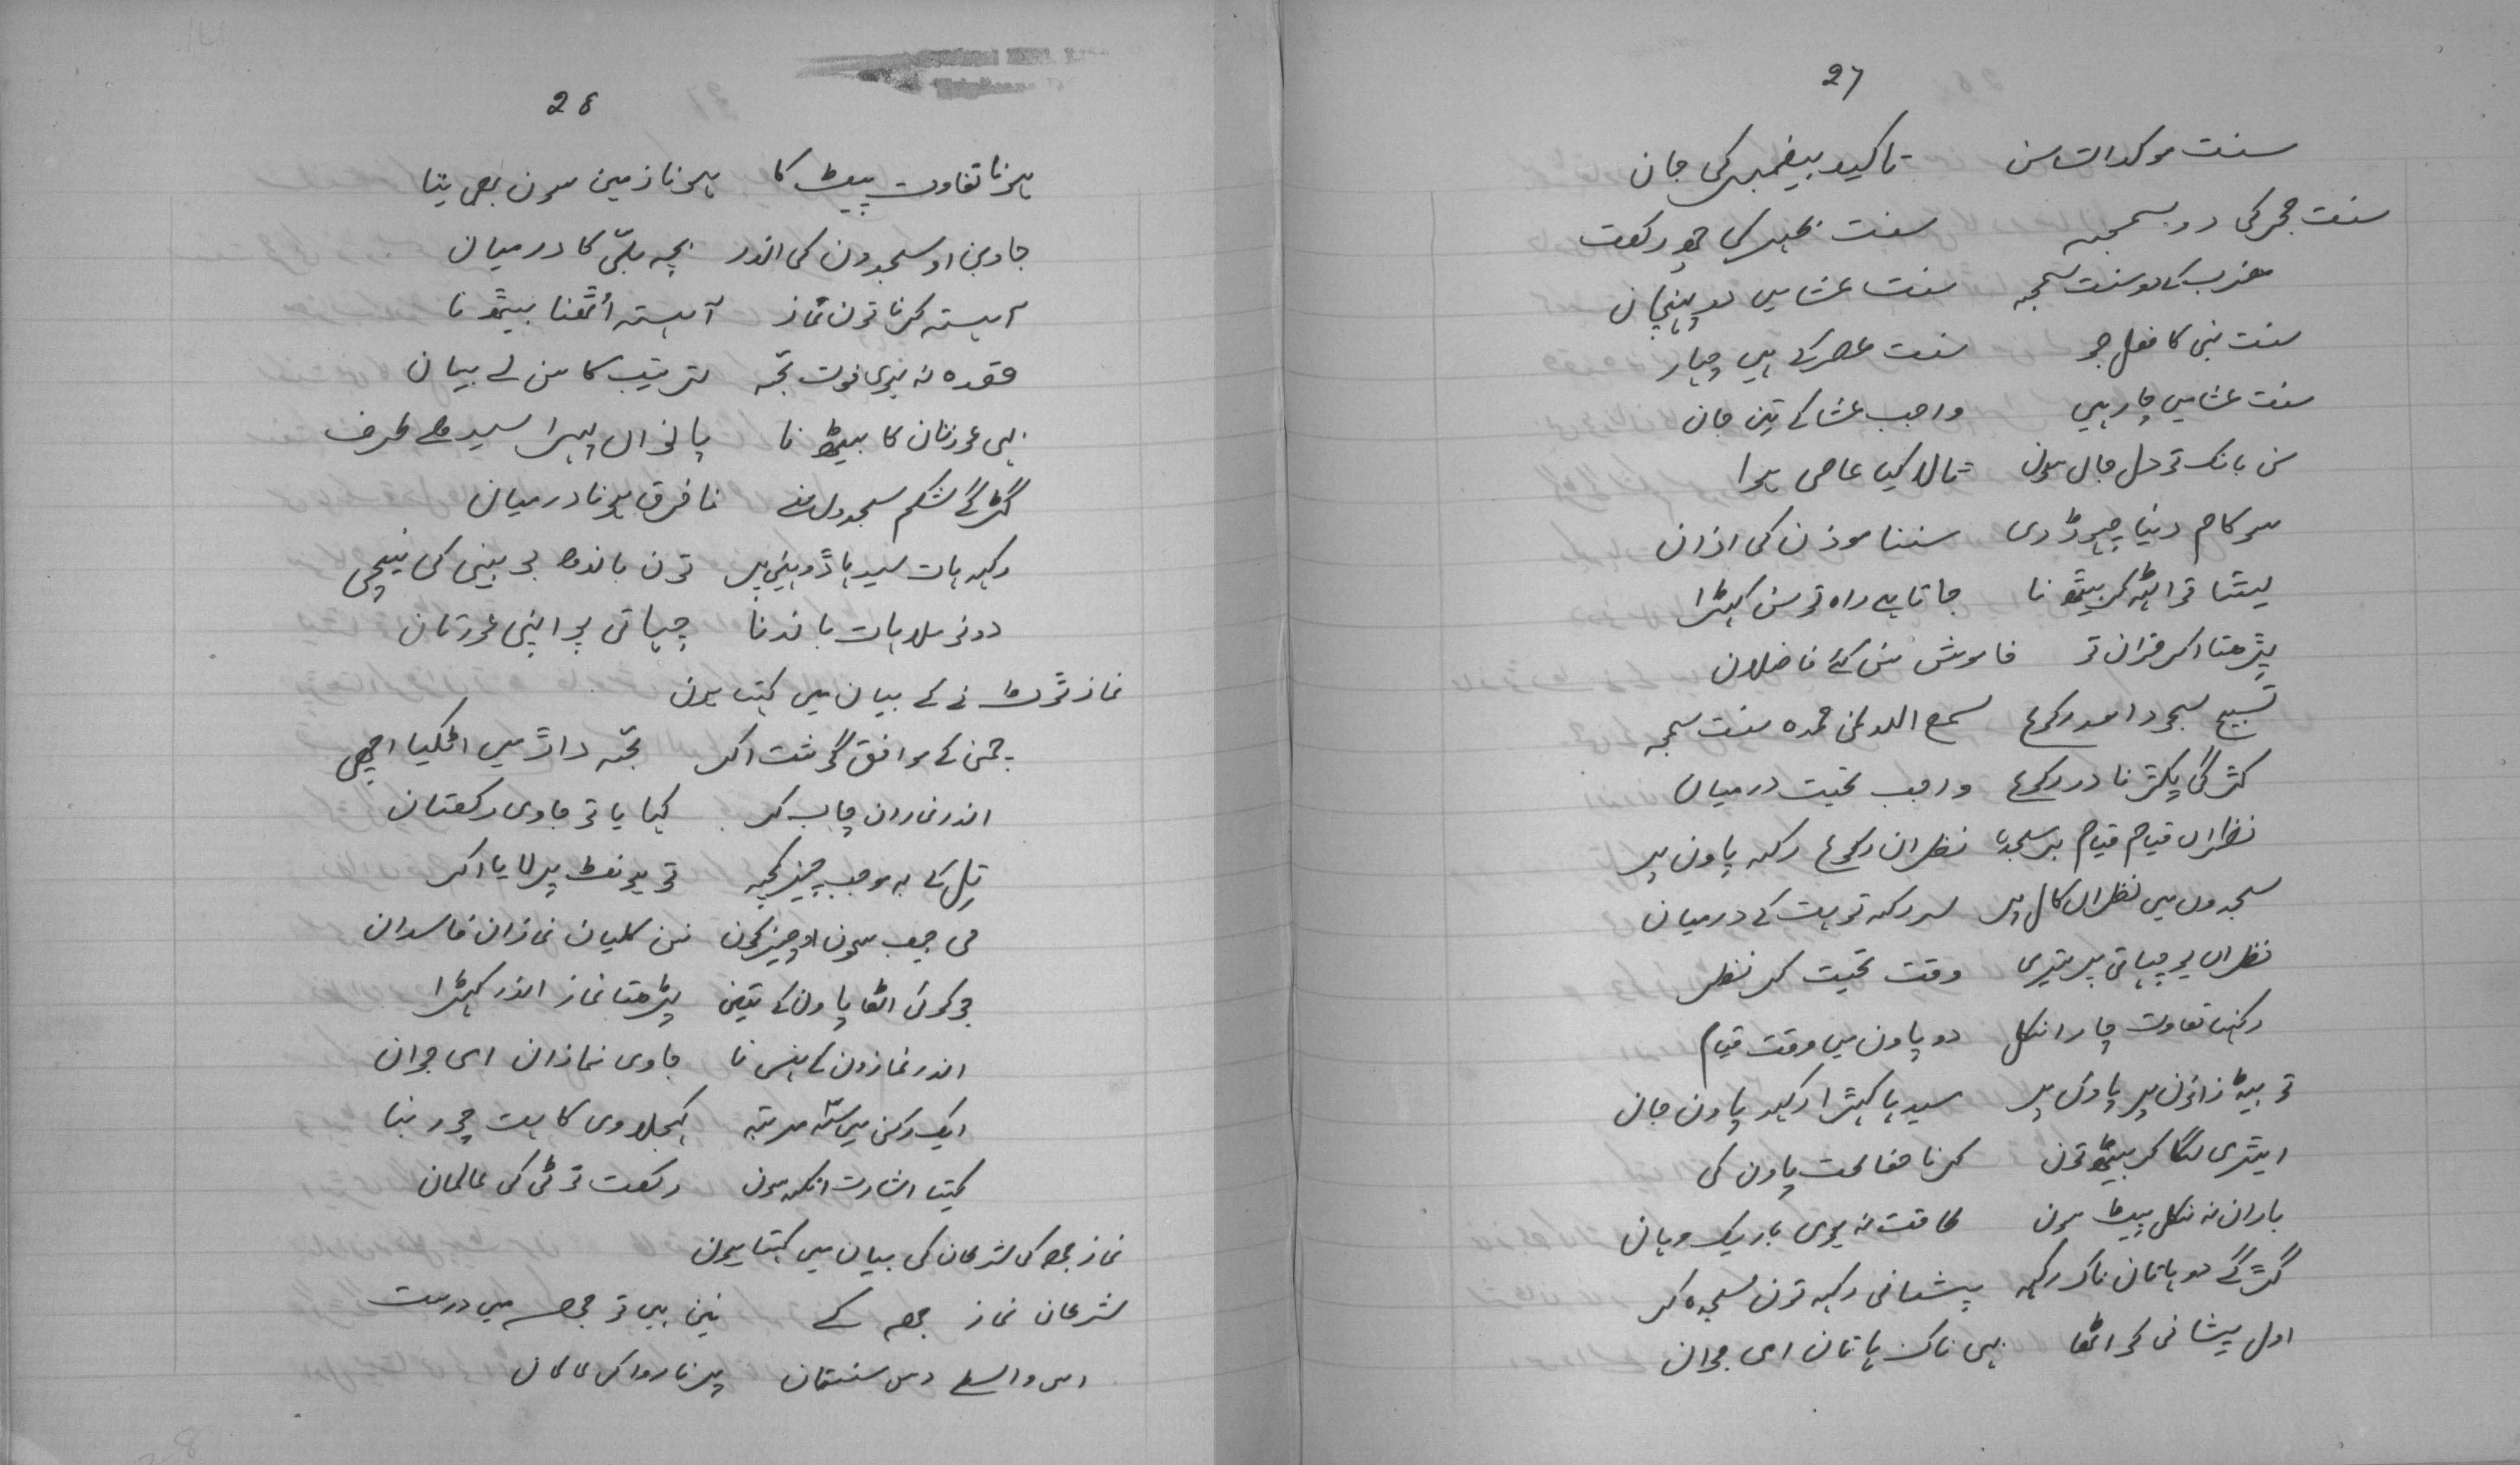 27
سنت موکدات سن تاکید پیغمبر کی جان
سنت فجر کی دو سمجہ سنت ظہر کی چھ رکعت
مغرب کے دو سنت سمجہ سنت عشا میں دو پہنچان
سنت نبی کا فعل جو سنت عصر کے ہیں چہار
سنت عشا میں چار ہیں واجب عشا کے تین جان
سن بانگ تو دل جال سوں ٹالا کیا عاصی ہوا
سو کام دنیا چہوڑ دی سننا موذن کی اذان
لیٹتا تو اٹہہ کر بیٹھنا جاتا ہے راہ تو سن کہڑا
پڑھتا اگر قران تو خاموش سن کے فاضلان
تسبیح سجود اور رکوع سمع اللہ لمن حمدہ سنت سمجہ
گڑگی پکڑنا در رکوع واجب تحیت درمیان
نظران قیام قیام بر سجدہ نظران رکوع رکہہ پاون پر
سجدوں میں نظران گال پر سر رکہہ تو ہت کے درمیان
نظران ہو چہاتی پر تیری وقت تحیت کر نظر
رکہنا تفاوت چار انگل دو پاون میں وقت قیام
تو بیٹ زانوں پر پاوں پر سیدہا کہڑا رکہہ پاوں جان
ایڑی لگا کر بیٹھ توں کرنا حفاظت پاوں کی
باران نہ نکل پیٹ سوں طاقت نہ ہوی باریک وہان
گڑگے دو ہاتان ناک رکہہ پیشانی رکہہ توں سجدہ کر
اول پیشانی کو اٹھا پہی ناک ہاتان ای جوان
28
ہونا تفاوت پیٹ کا ہونا زمین سون بھی یتا
جاوین او سجدوں کی اندر بچہ بلّی کا درمیان
آہستہ کرنا توں نماز آہستہ اُٹھنا بیٹھنا
قعدہ نہ ہوی فوت تجہ ترتیب کا سن لے بیان
پہی عورتان کا بیٹھنا پانواں پہرا سیدھے طرف
گڑگے شکم سجدوں منے نا فرق ہونا درمیان
رکہہ ہات سیدہا ڈوپنی پر توں باندھ بو بینی کی نیچی
دونو ملا ہات باندنا چہاتی پو اپنی عورتان
نماز توٹ نے کے بیان میں کہتا ہوں
چمن کے موافق گوشت اگر تجہ داڑ میں اٹکیا اچھی
اندر نمازان چاب کر کہایا تو جاوی رکعتان
تِل کے بہ موجب چیز کچہہ تو ہونٹ پر لایا اگر
می جیب سوں او چیز کوں نن کلیان نمازان فاسدان
جو کوئی اٹھا پاون کے تیئں پڑھتا نماز اندر کہڑا
اندر نمازوں کے ہنس نا جاوی نمازان ای جوان
ایک رکن میں سہ مرتبہ کہجلاوی کا ہت چور بتا
کیتا اشارت انکہہ سوں رکعت توٹی کی عالمان
نماز جمعہ کی شرطان کی بیان میں کہتا ہوں
شرطان نماز جمعہ کے نین ہیں تو جمعہ میں درست
اس واسطے دس سنتان پڑنا روا کر عالمان